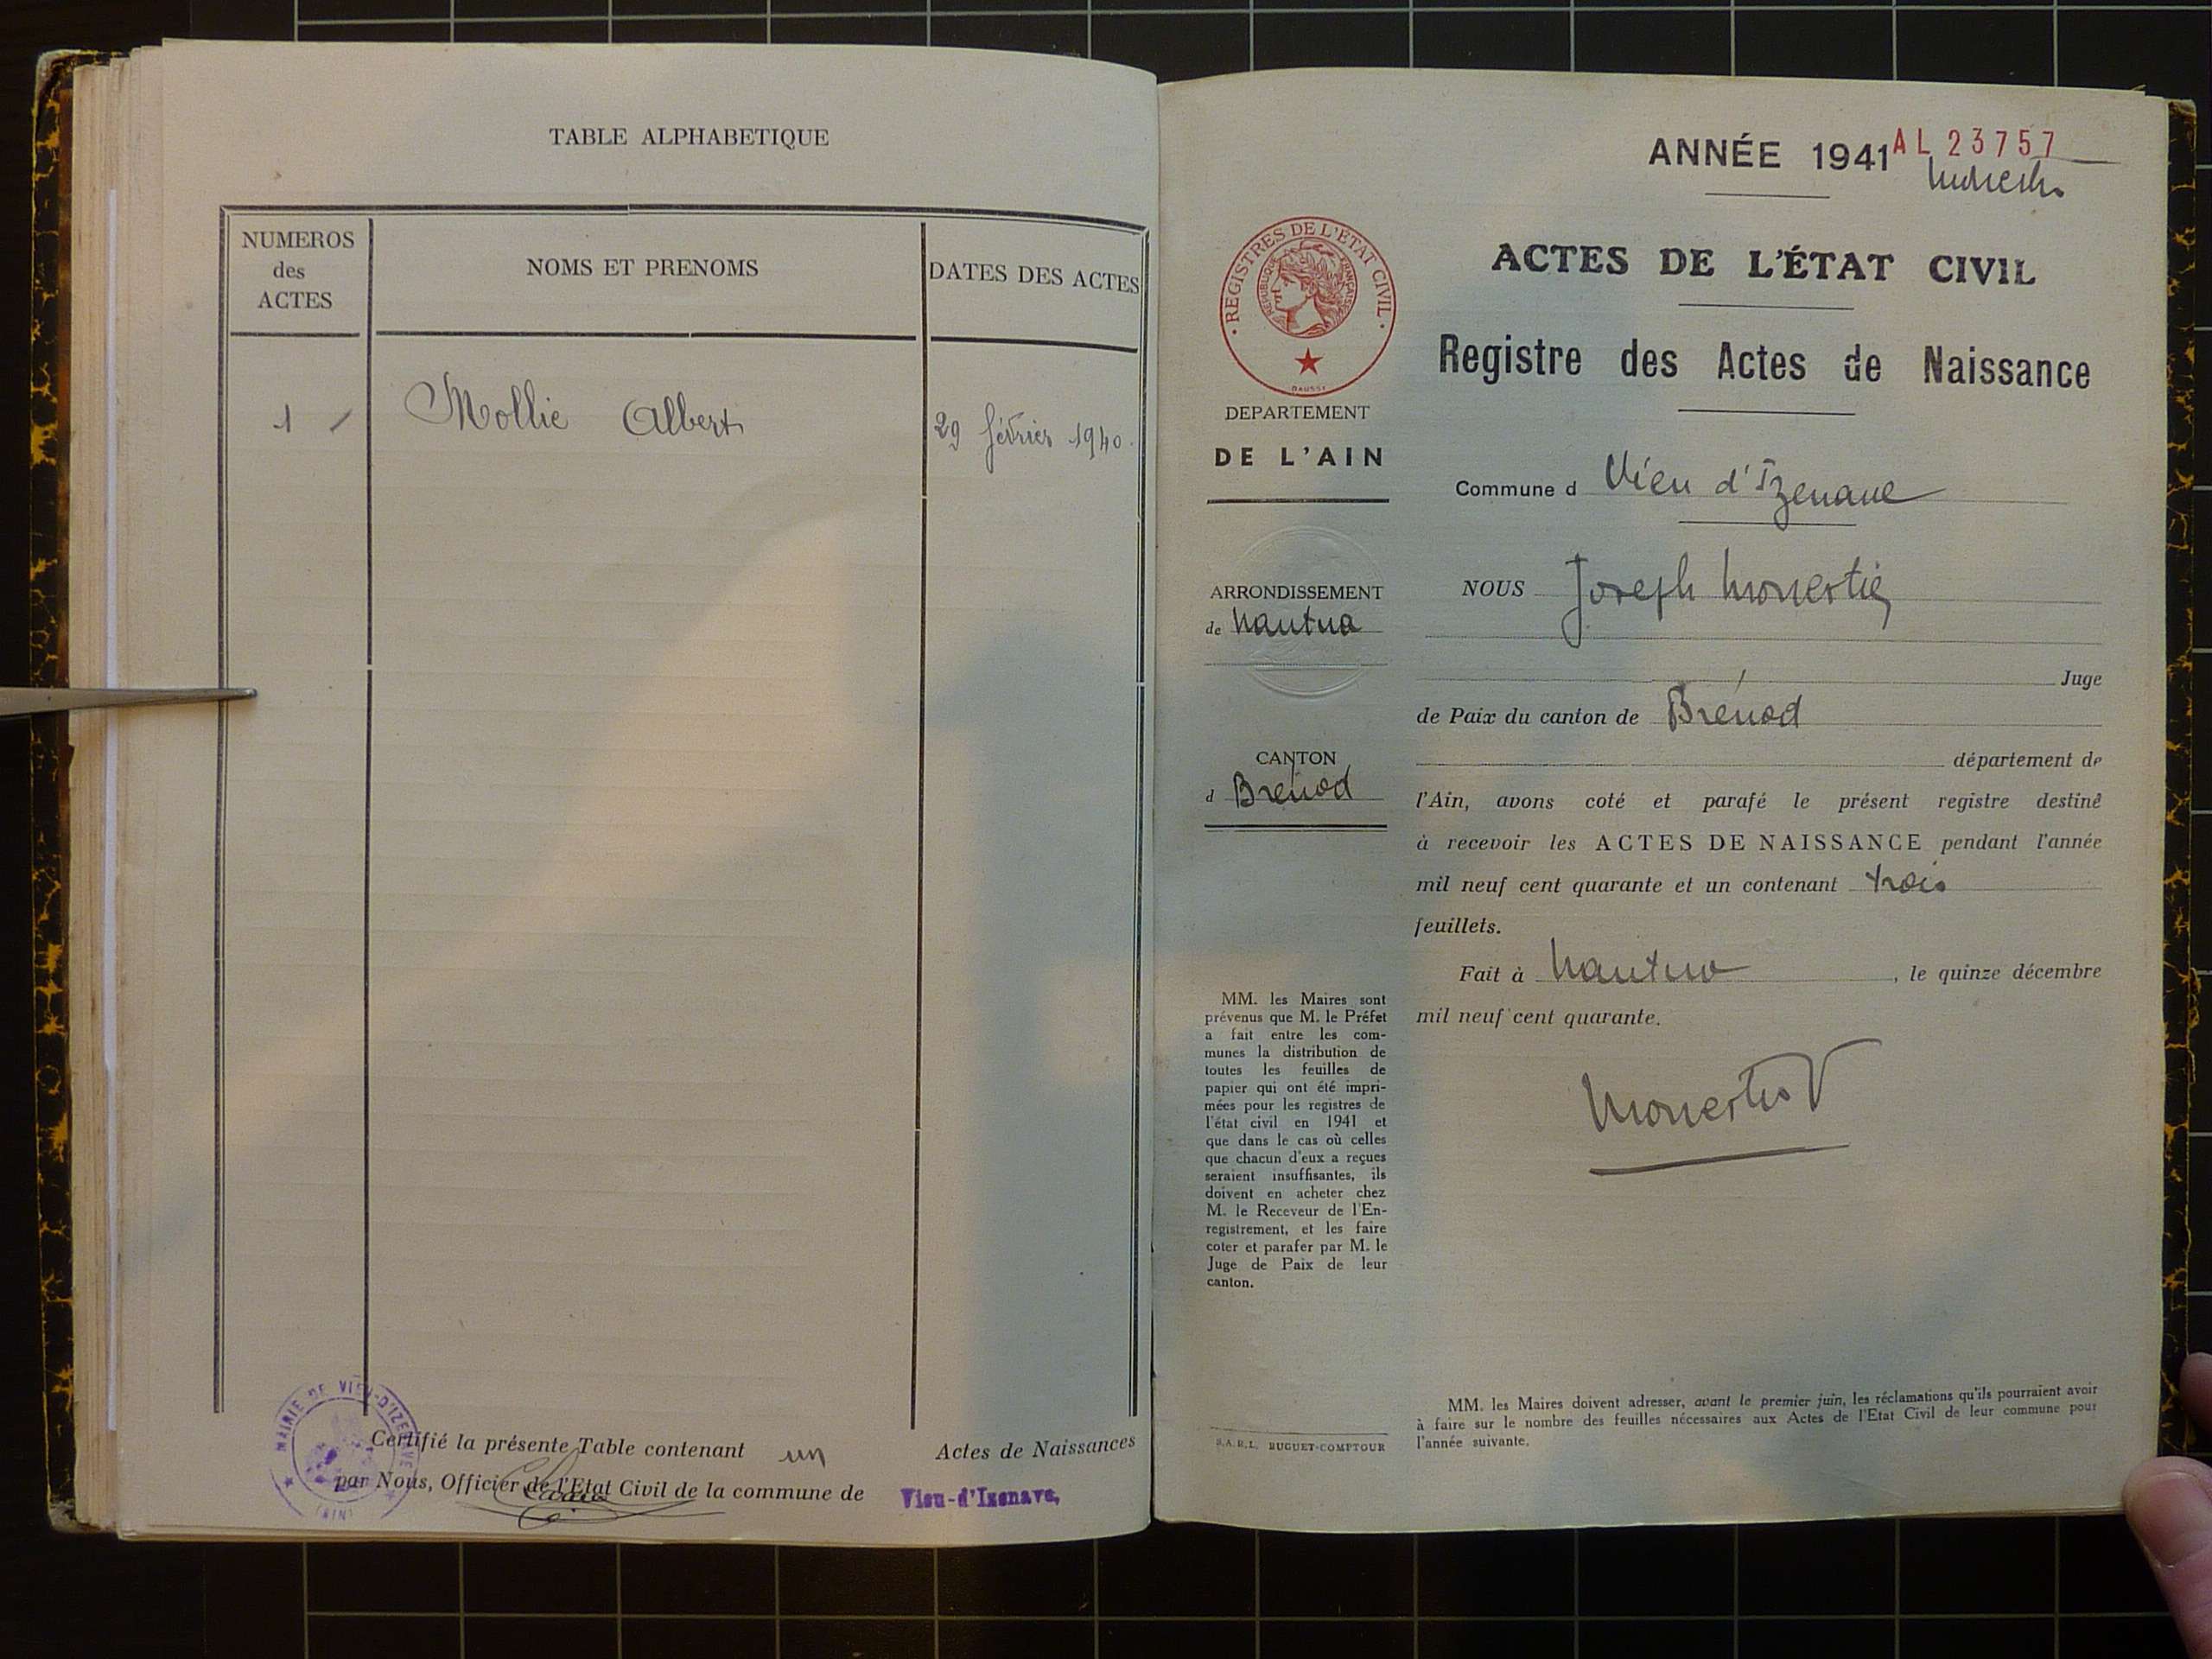 TABLE ALPHABETIQUE
NUMEROS
des
ACTES
NOMS ET PRENOMS
DATES DES ACTES
1 Mollie Albert 29 février 1940.
MAIRIE DE VIEU-D'IZENAVE
(AIN)
Certifié la présente Table contenant un Actes de Naissances
par Nous, Officier de l'Etat Civil de la commune de Vieu-d'Izenave,
ANNÉE 1941
AL 23757
ACTES DE L'ÉTAT CIVIL
Registre des Actes de Naissance
· REGISTRES DE L'ÉTAT CIVIL ·
RÉPUBLIQUE FRANÇAISE
DEPARTEMENT
DE L'AIN
Commune d Vieu d'Izenave
ARRONDISSEMENT
de Nantua
CANTON
d Brénod
NOUS Joseph Monestier
Juge
de Paix du canton de Brénod
département de
l'Ain, avons coté et parafé le présent registre destiné
à recevoir les ACTES DE NAISSANCE pendant l'année
mil neuf cent quarante et un contenant trois
feuillets.
Fait à Nantua, le quinze décembre
mil neuf cent quarante.
MM. les Maires sont
prévenus que M. le Préfet
a fait entre les com-
munes la distribution de
toutes les feuilles de
papier qui ont été impri-
mées pour les registres de
l'état civil en 1941 et
que dans le cas où celles
que chacun d'eux a reçues
seraient insuffisantes, ils
doivent en acheter chez
M. le Receveur de l'En-
registrement, et les faire
coter et parafer par M. le
Juge de Paix de leur
canton.
S.A.R.L. BUGUET-COMPTOUR
MM. les Maires doivent adresser, avant le premier juin, les réclamations qu'ils pourraient avoir
à faire sur le nombre des feuilles nécessaires aux Actes de l'Etat Civil de leur commune pour
l'année suivante.